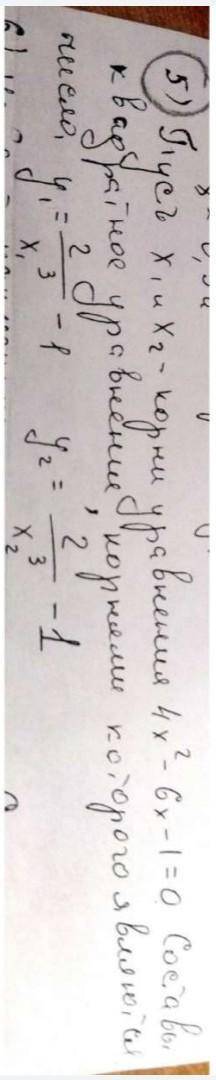 5) Пусть x₁ и x₂ - корни уравнения 4x² - 6x - 1 = 0 Составь
квадратное уравнение, корнями которого являются
числа, y₁ = 2/x₁³ - 1 y₂ = 2/x₂³ - 1